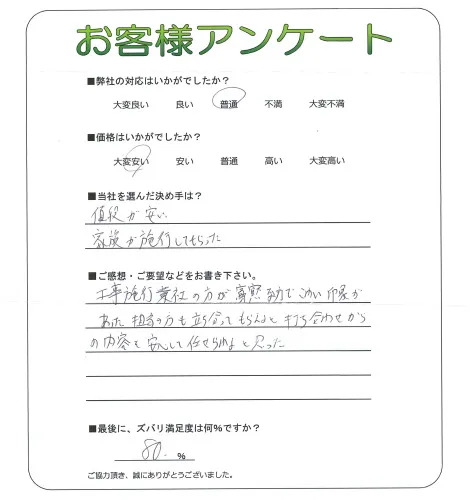 お客様アンケート
■弊社の対応はいかがでしたか?
大変良い 良い 普通 不満 大変不満
■価格はいかがでしたか?
大変安い 安い 普通 高い 大変高い
■当社を選んだ決め手は?
値段が安い
家族が施行してもらった
■ご感想・ご要望などをお書き下さい。
工事施行業社の方が寡黙 で 印象が
あった 担当の方も立ち合ってもらえると打ち合わせから
の内容を安心して任せられると思った
■最後に、ズバリ満足度は何%ですか?
80. %
ご協力頂き、誠にありがとうございました。